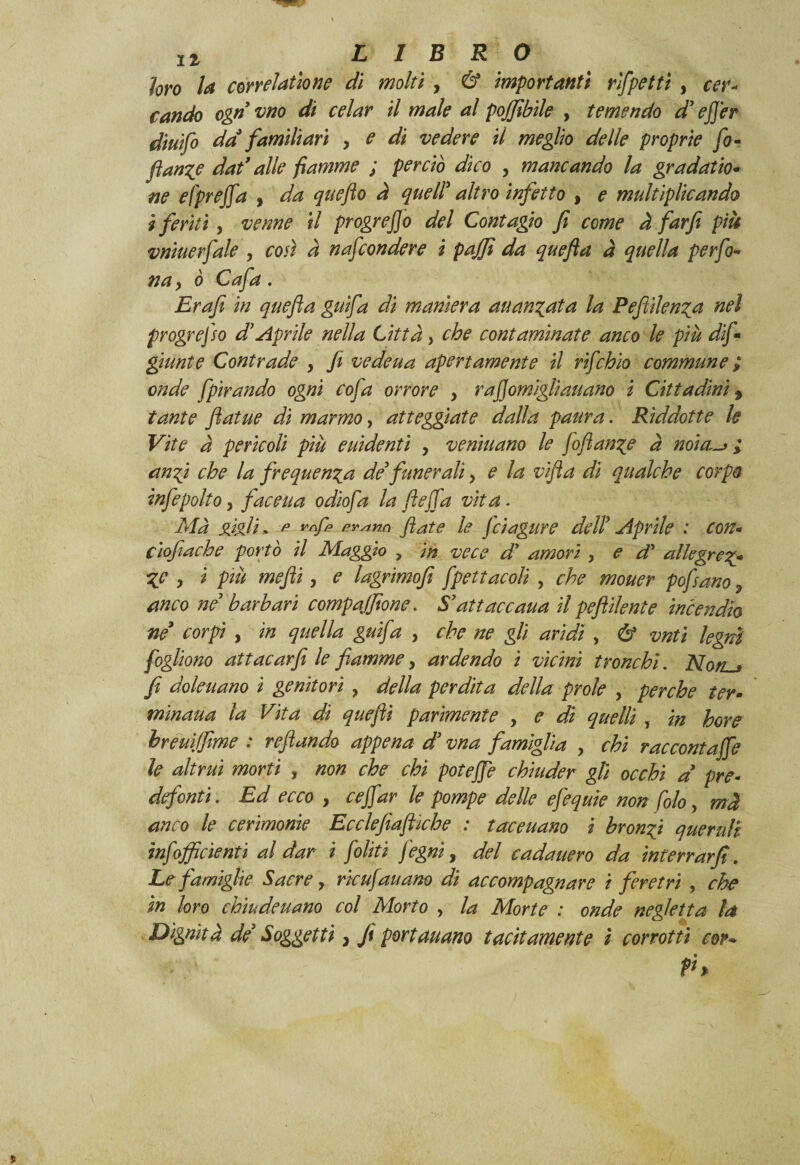 12 LIBRO
loro la correlatione di molti , & importanti riſpetti , cer-
cando ogn' vno di celar il male al poſſibile , temendo d' eſſer
diuiſo da' familiari , e di vedere il meglio delle proprie ſo-
ſtanze dat' alle fiamme ; perciò dico , mancando la gradatio-
ne eſpreſſa , da queſto à quell' altro infetto , e multiplicando
i feriti , venne il progreſſo del Contagio ſi come à farſi più
vniuerſale , così à naſcondere i paſſi da queſta à quella perſo-
na, ò Caſa .
Eraſi in queſta guiſa di maniera auanzata la Peſtilenza nel
progreſso d'Aprile nella Città, che contaminate anco le più diſ-
giunte Contrade , ſi vedeua apertamente il riſchio commune ;
onde ſpirando ogni coſa orrore , raſſomigliauano i Cittadini ,
tante ſtatue di marmo, atteggiate dalla paura. Riddotte le
Vite à pericoli più euidenti , veniuano le ſoſtanze à noia ;
anzi che la frequenza de' funerali, e la viſta di qualche corpo
inſepolto, faceua odioſa la ſteſſa vita .
Mà gigli, e roſe erano ſtate le ſciagure dell' Aprile : con-
cioſiache portò il Maggio , in vece d' amori , e d' allegrez-
ze , i più meſti , e lagrimoſi ſpettacoli , che mouer poſsano ,
anco ne' barbari compaſſione. S'attaccaua il peſtilente incendio
ne' corpi , in quella guiſa , che ne gli aridi , & vnti legni
ſogliono attacarſi le fiamme, ardendo i vicini tronchi. Non
ſi doleuano i genitori , della perdita della prole , perche ter-
minaua la Vita di queſti parimente , e di quelli , in hore
breuiſſime : reſtando appena d' vna famiglia , chi raccontaſſe
le altrui morti , non che chi poteſſe chiuder gli occhi a' pre-
defonti. Ed ecco , ceſſar le pompe delle eſequie non ſolo, mà
anco le cerimonie Eccleſiaſtiche : taceuano i bronzi queruli
inſofficienti al dar i ſoliti ſegni, del cadauero da interrarſi.
Le famiglie Sacre, ricuſauano di accompagnare i feretri , che
in loro chiudeuano col Morto , la Morte : onde negletta la
Dignità de' Soggetti , ſi portauano tacitamente i corrotti cor-
pi,